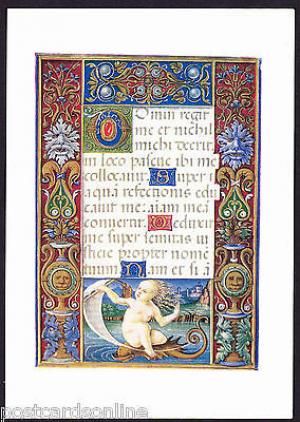 Omin regit
me et nichil
michi deerit
in loco pascue ibi me
collocavit Super
aquā refectionis edu
cavit me aīam meā
convertit Deduxit
me super semitas ius
ticie propter nomē
suum Nam et si ā
postcardsonline